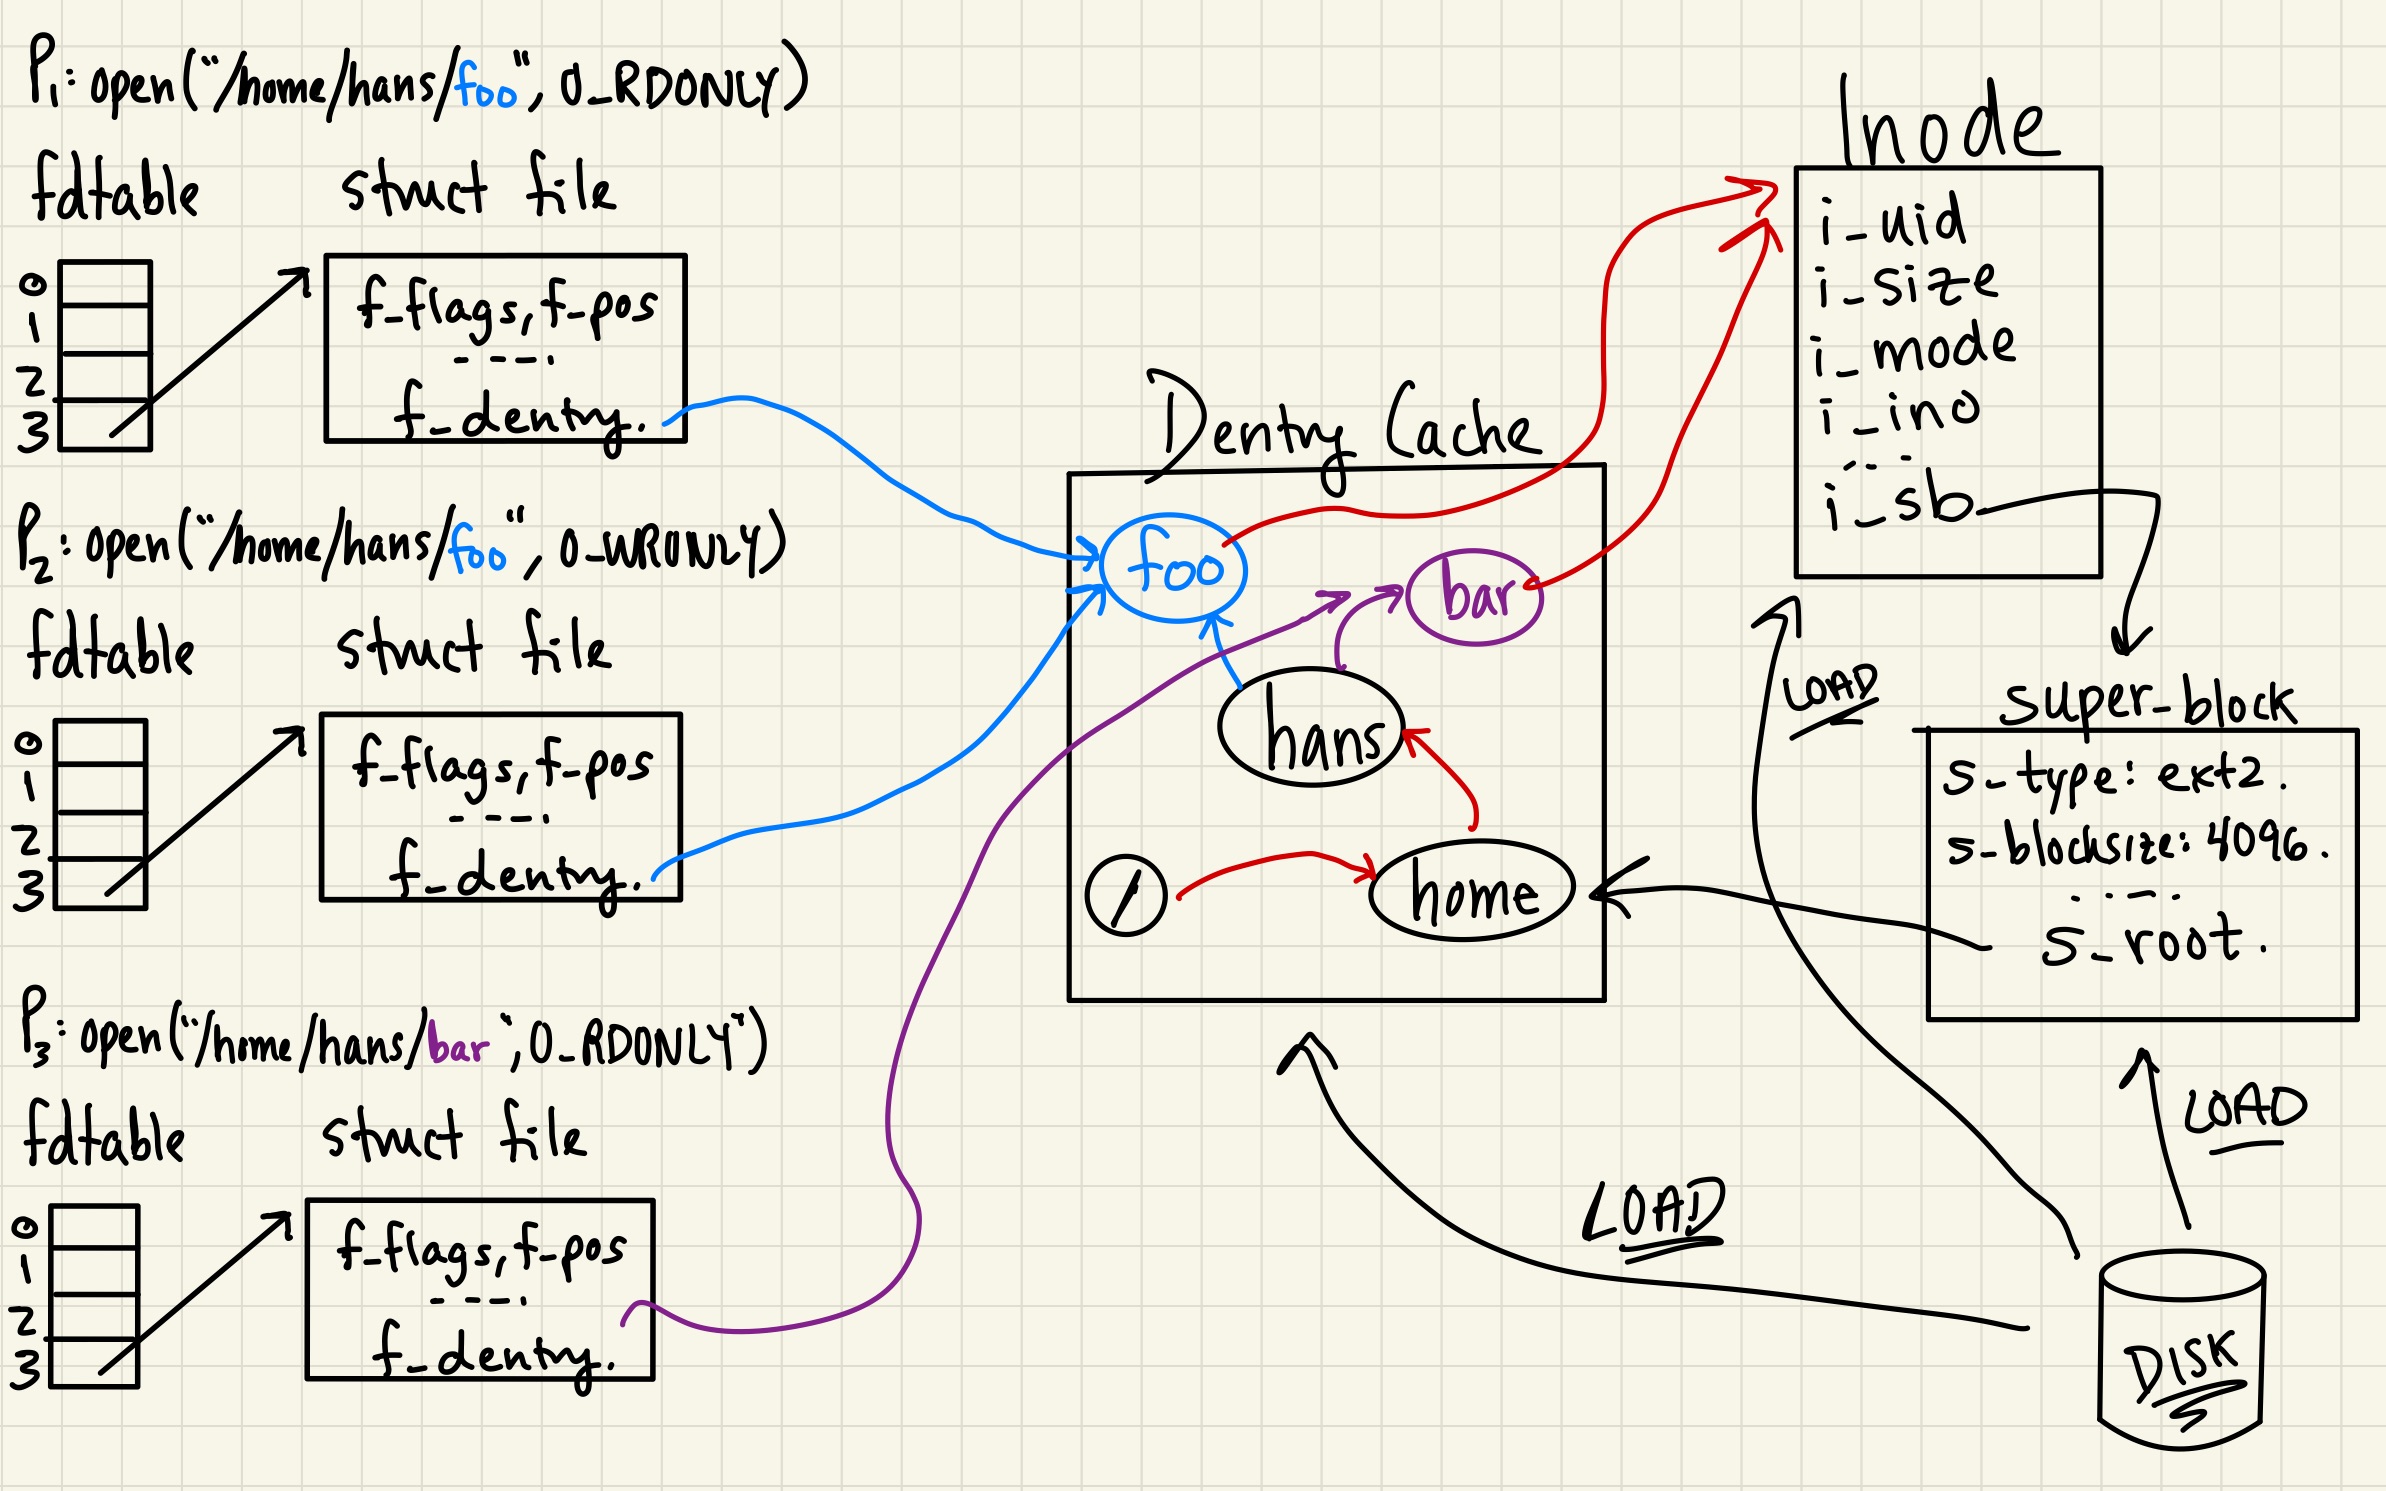 P1: open("/home/hans/foo", O_RDONLY)
fdtable struct file
0
1
2
3
f_flags, f_pos
----
f_dentry.
P2: open("/home/hans/foo", O_WRONLY)
fdtable struct file
0
1
2
3
f_flags, f_pos
----
f_dentry.
P3: open("/home/hans/bar", O_RDONLY")
fdtable struct file
0
1
2
3
f_flags, f_pos
----
f_dentry.
Dentry Cache
foo
bar
hans
/
home
Inode
i_uid
i_size
i_mode
i_ino
---
i_sb
LOAD
super_block
s_type: ext2.
s_blocksize: 4096.
----
s_root.
LOAD
LOAD
DISK